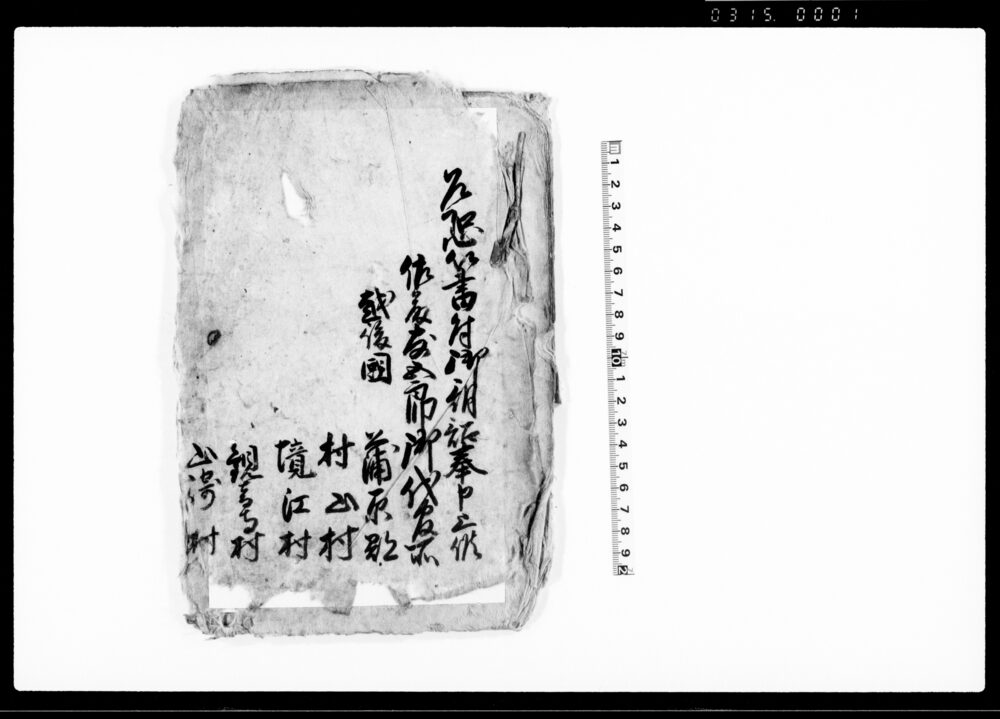 0315. 0001
乍恐以書付御奉申上候
佐藤友五郎御代官所
越後國
蒲原郡
村山村
境江村
観音寺村
山崎村
1 2 3 4 5 6 7 8 9 10 1 2 3 4 5 6 7 8 9 2